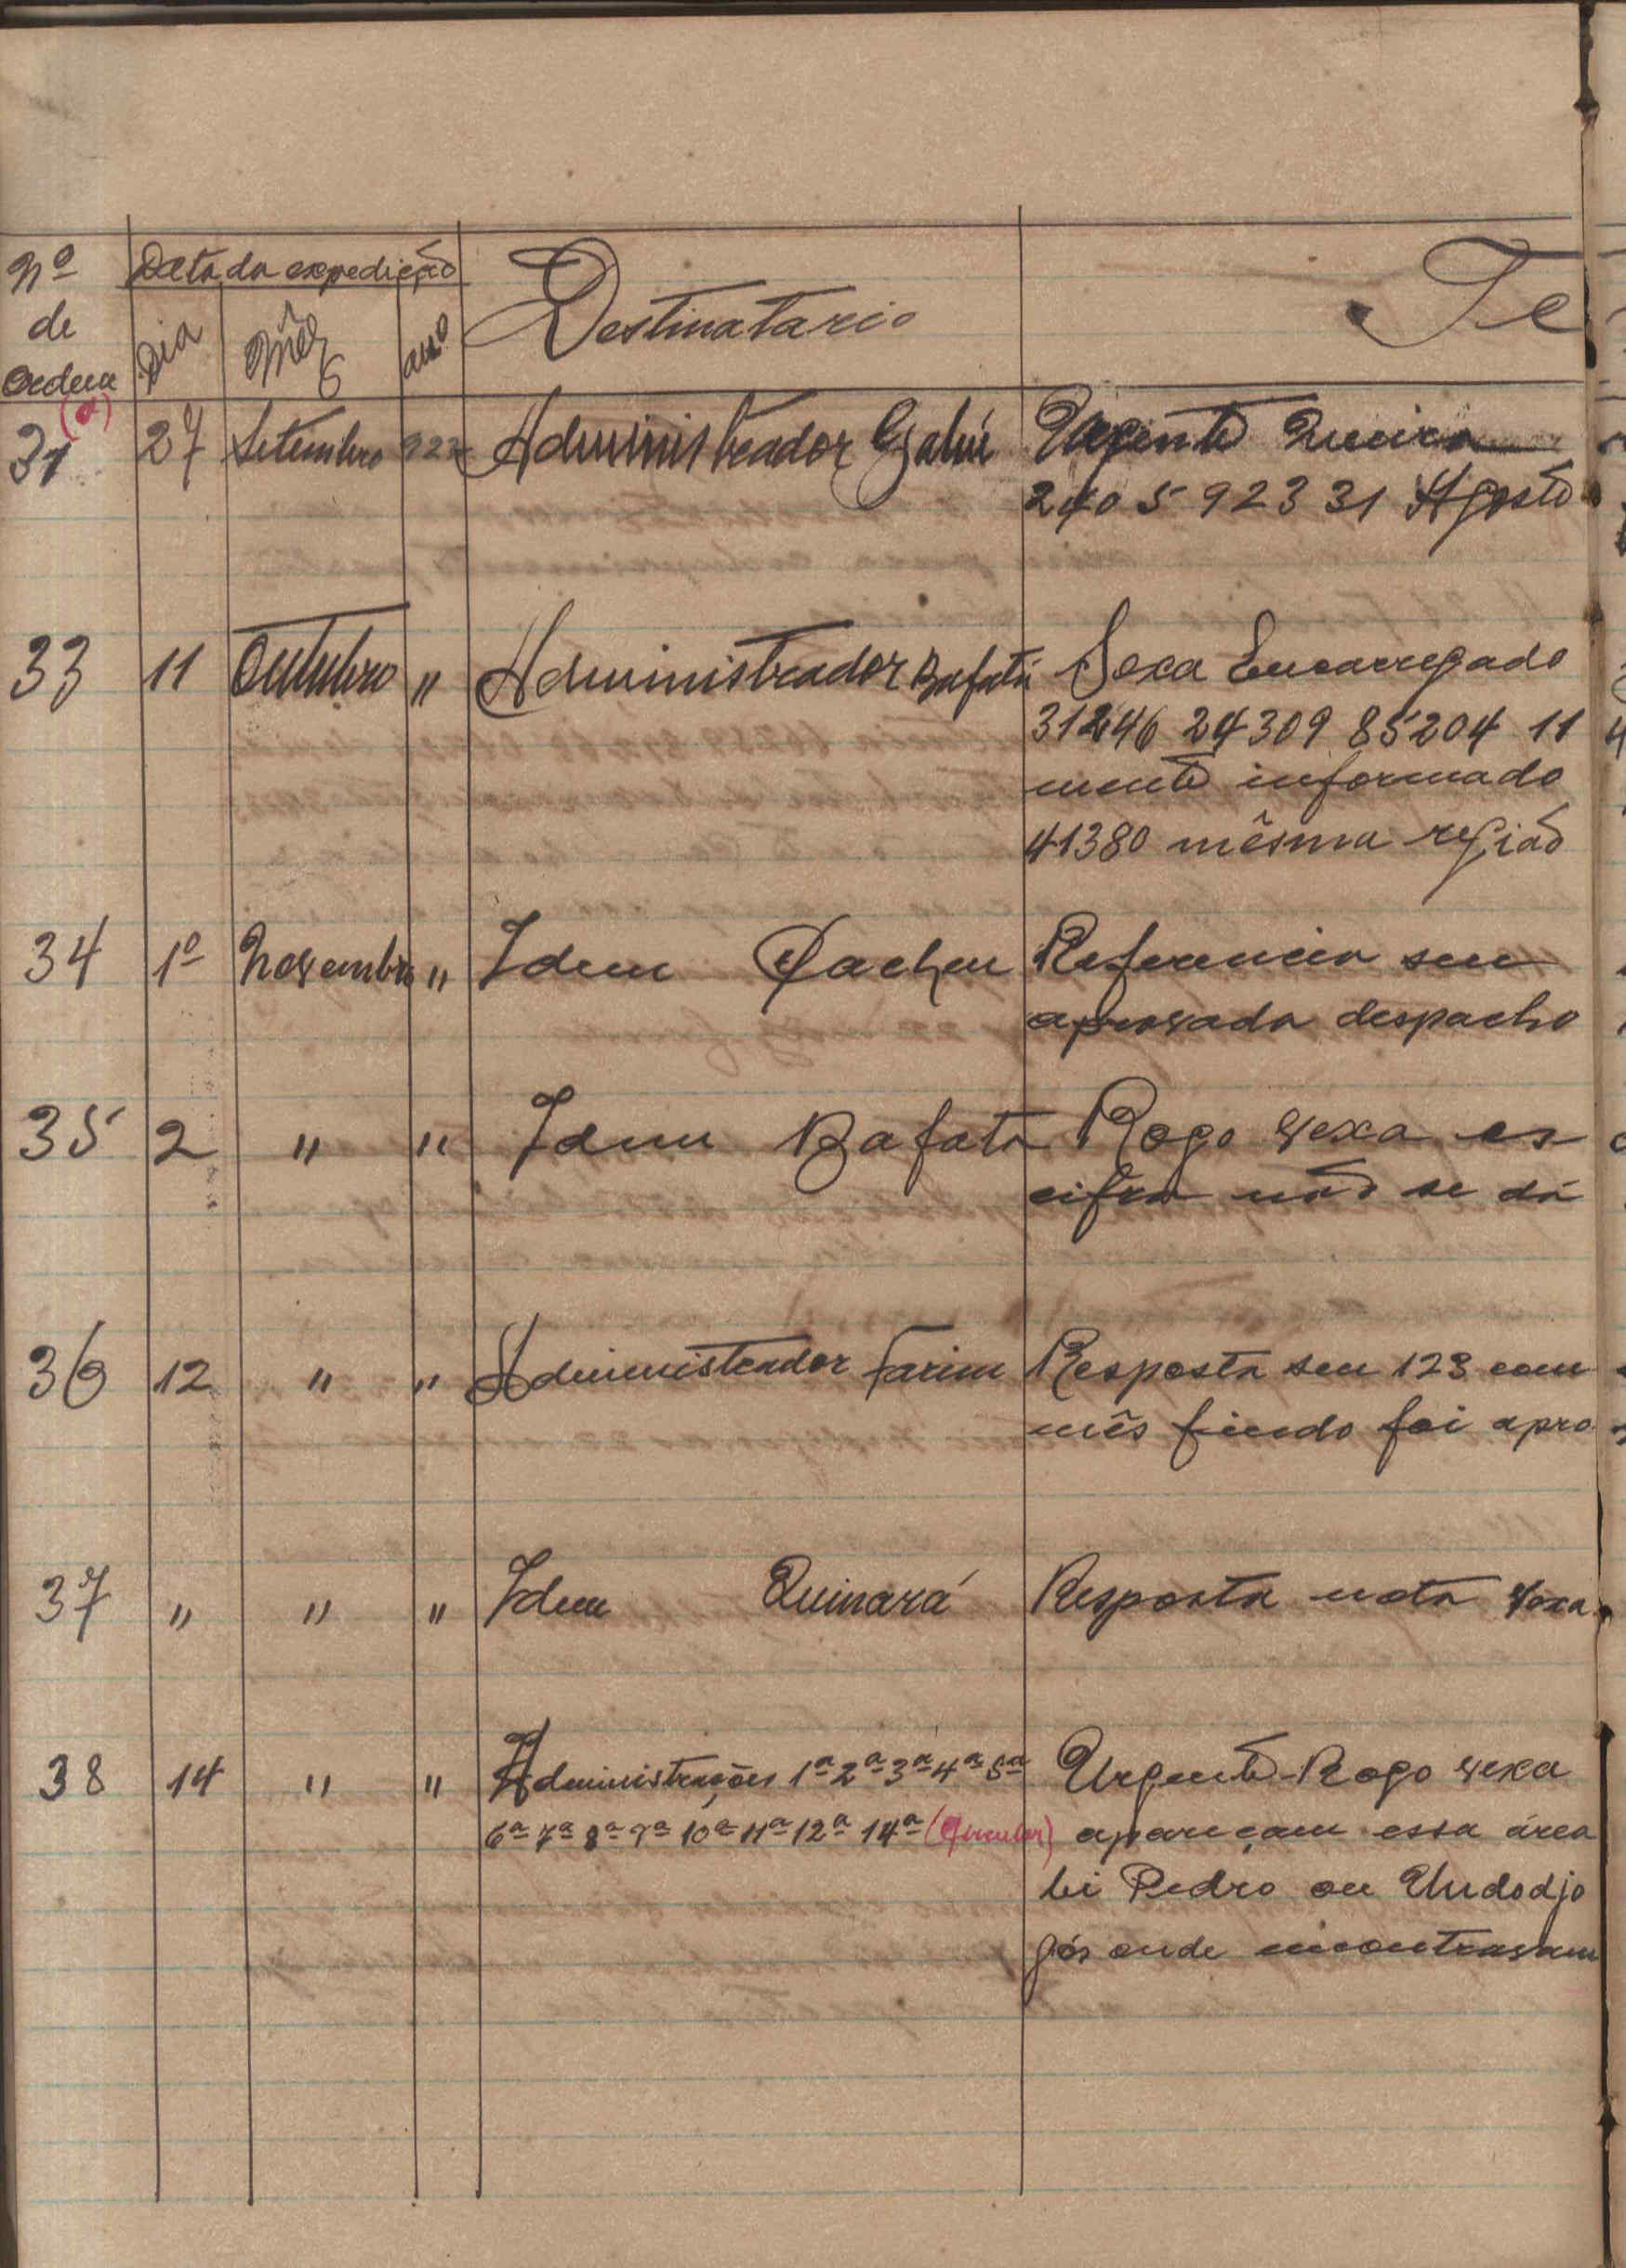 Nº de Ordem Data da expedição Destinatario Te
Dia Mêz ano
31 (a) 27 Setembro 923 Administrador Gabú Urgente Queira
2405 923 31 Agosto
33 11 Outubro " Administrador Bafatá Sexa Encarregado
31246 24309 85204 11
mente informado
41380 mêsma região
34 1º Novembro " Idem Cacheu Referencia seu
aprovada despacho
35 2 " " Idem Bafatá Rogo Vexa es
cifra não se dá
36 12 " " Administrador Farim Resposta seu 123 com
mês findo foi apro
37 " " " Idem Quinará Resposta nota Vexa
38 14 " " Administrações 1ª 2ª 3ª 4ª 5ª Urgente-Rogo Vexa
6ª 7ª 8ª 9ª 10ª 11ª 12ª 14ª (Circular) apareçam essa área
bi Pedro ou Undodjo
gós onde encontravam